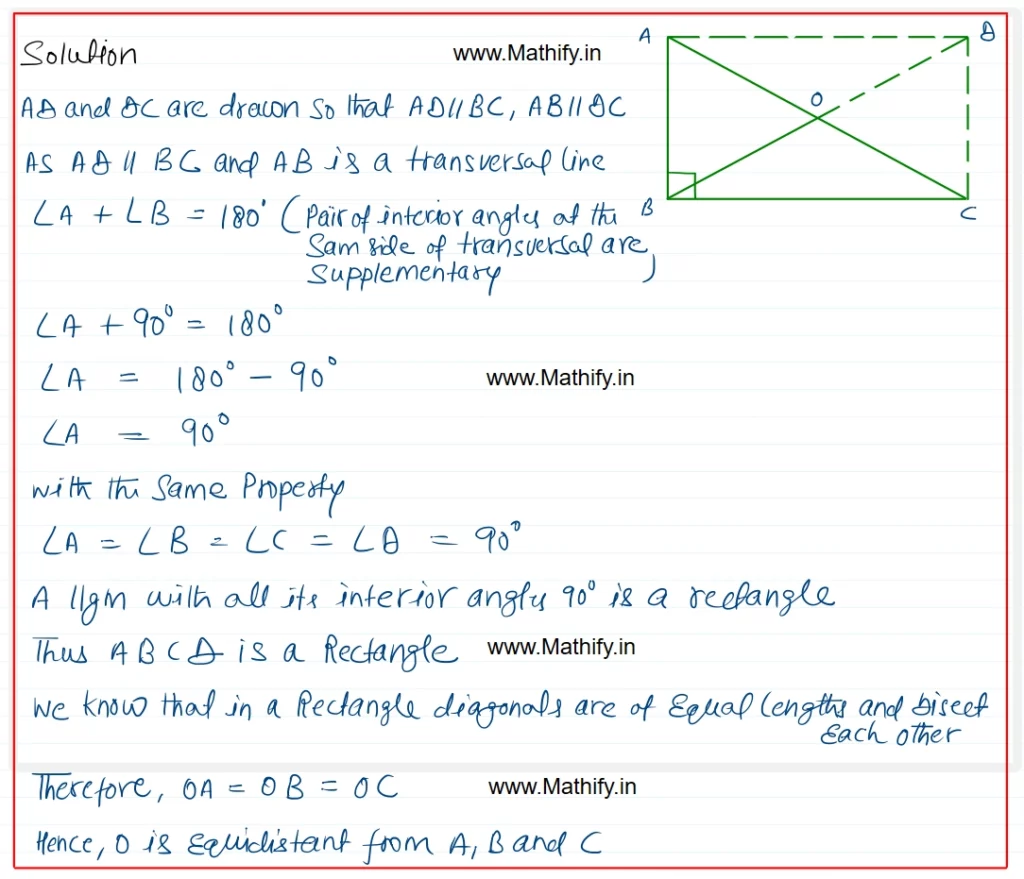 Solution
www.Mathify.in
A D
AD and DC are drawn so that AD||BC, AB||DC
O
As AD || BC and AB is a transversal line
∠A + ∠B = 180° (Pair of interior angles of the
Sam side of transversal are,
Supplementary )
B
C
∠A + 90° = 180°
∠A = 180° - 90°
www.Mathify.in
∠A = 90°
with the Same Property
∠A = ∠B = ∠C = ∠D = 90°
A ||gm with all its interior angles 90° is a rectangle
Thus ABCD is a Rectangle
www.Mathify.in
We know that in a Rectangle diagonals are of Equal Lengths and bisect
Each other
Therefore, OA = OB = OC
www.Mathify.in
Hence, O is Equidistant from A, B and C